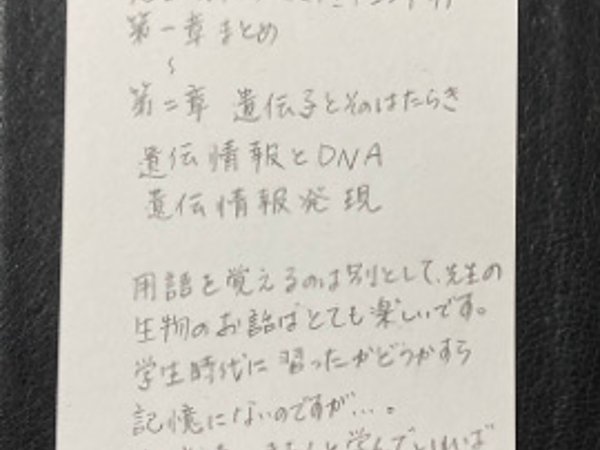 第一章まとめ
〜
第二章 遺伝子とそのはたらき
遺伝情報とDNA
遺伝情報発現
用語を覚えるのは別として、先生の
生物のお話はとても楽しいです。
学生時代に習ったかどうかすら
記憶にないのですが…。